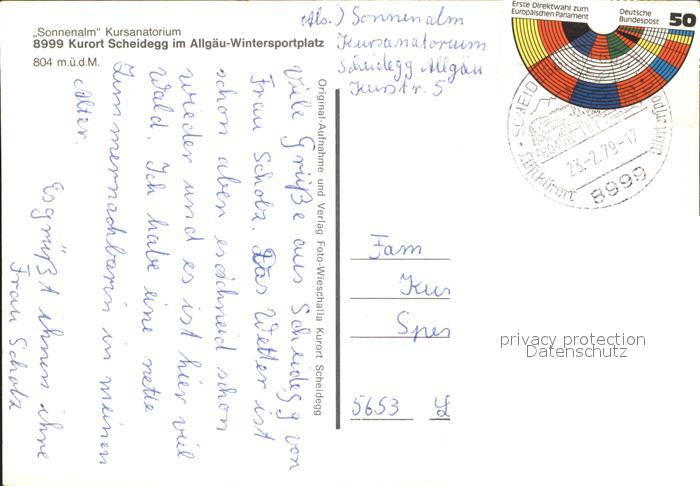 „Sonnenalm“ Kursanatorium
8999 Kurort Scheidegg im Allgäu-Wintersportplatz
804 m.ü.d.M.
(Abs.) Sonnenalm
Kursanatorium
Scheidegg Allgäu
Kurstr. 5
Erste Direktwahl zum
Europäischen Parlament
Deutsche
Bundespost
50
SCHEID
Luftkurort
23.-2.79-17
8999
Original-Aufnahme und Verlag Foto-Wieschalla Kurort Scheidegg
Viele Grüße aus Scheidegg von
Frau Scholz. Das Wetter ist
schon aber es schneid schon
wieder und es ist hier viel
Wald. Ich habe eine nette
Zimmernachbarin in meinen
Alter.
Es grüßt ihnen ihre
Frau Scholz
Fam
Kur
Spes
5653 L
privacy protection
Datenschutz